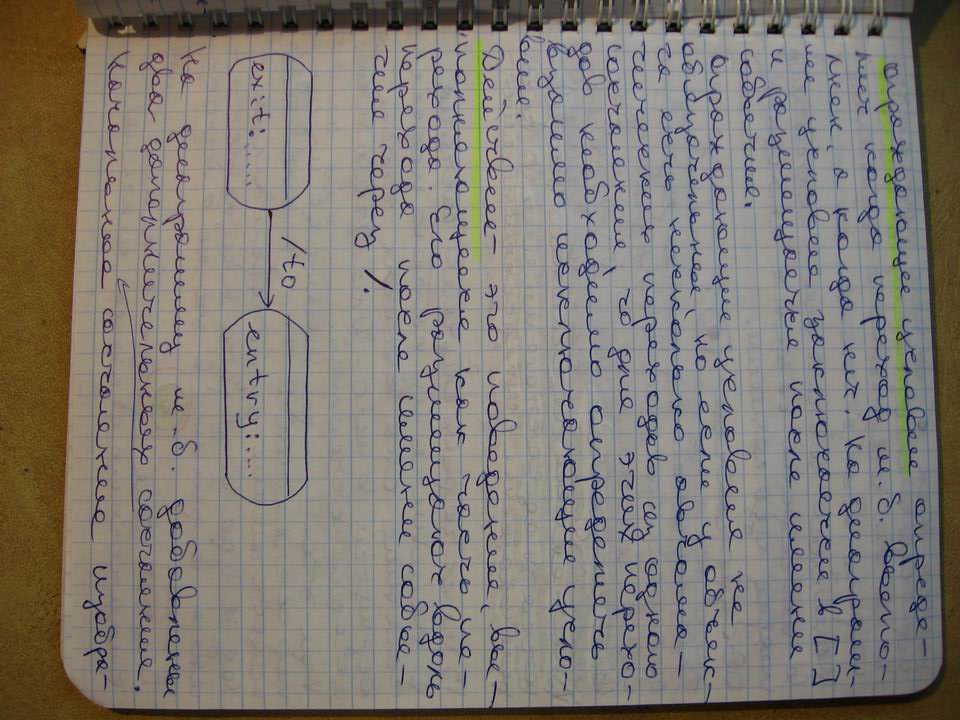 ограждающие условие опреде-
ляет когда переход м.б. выпо-
лнен, а когда нет. На диаграм-
ме условие записывается в [ ]
и размещается после имени
события.
Ограждающие условия не
обязательны, но если у объек-
та есть несколько автома-
тических переходов из одного
состояния, то для этих перехо-
дов необходимо определить
взаимно исключающие усло-
вия.
Действие - это поведение, вы-
полняющееся как часть пе-
рехода. Его размещают вдоль
перехода после имени собы-
тия через /.
exit:..... /to entry:....
На диаграмму м.б. добавлены
два динамического состояния.
Начальное состояние изобра-